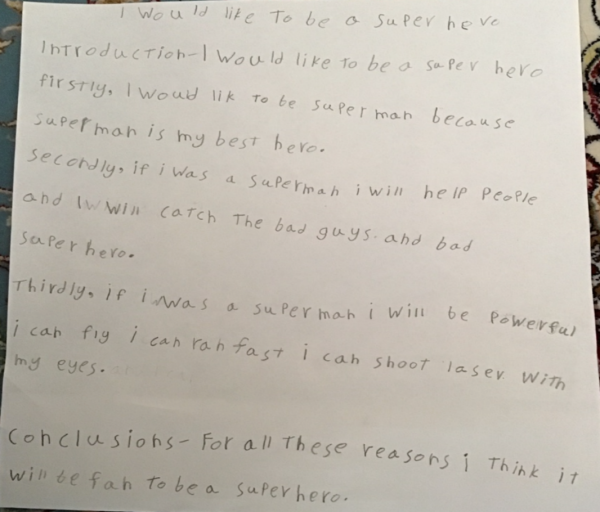 I would like To be a super hero
Introduction-I would like to be a saper hero
firstly, I woud lik To be superman because
superman is my best hero.
secondly, if i was a superman i will help People
and I will catch The bad guys. and bad
saper hero.
Thirdly, if i was a superman i will be powerful
i can fly i can ran fast i can shoot laser with
my eyes.
Conclusions- For all These reasons i Think it
will be fan To be a superhero.